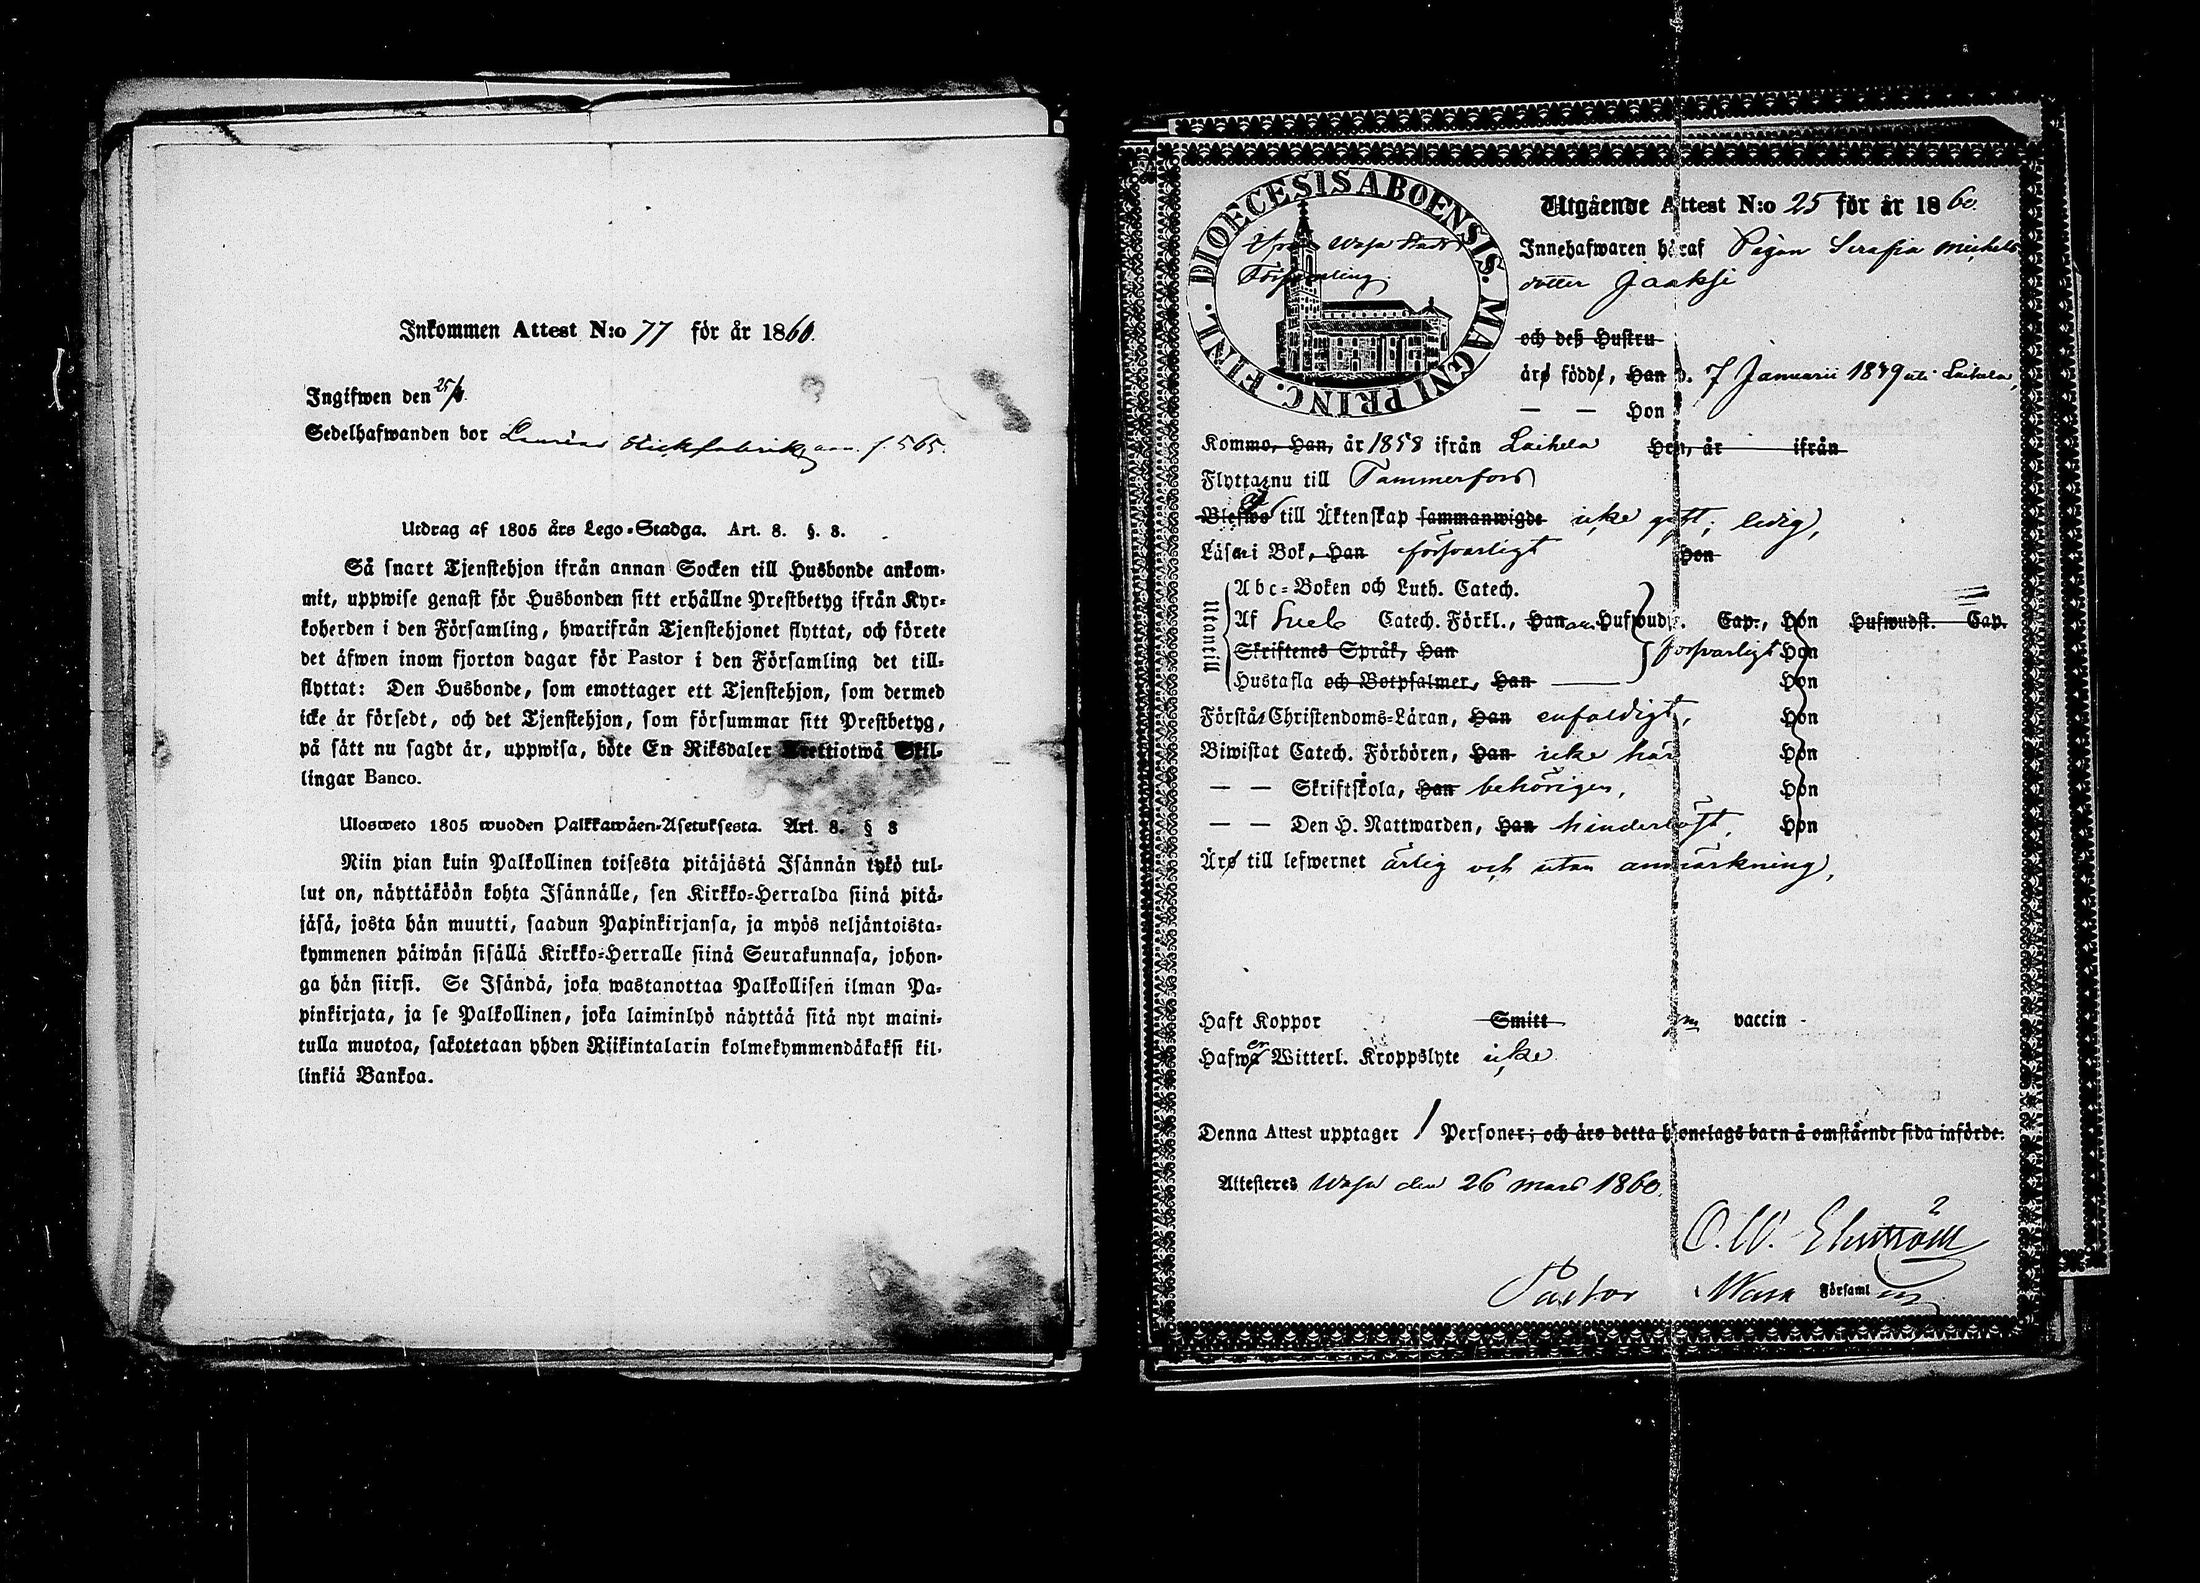 Inkommen Attest N:o 77 för år 1860.
Ingifwen den 25/
Sedelhafwanden bor f. 565.
Utdrag af 1805 års Lego-Stadga. Art. 8. §. 8.
Så snart Tjenstehjon ifrån annan Socken till Husbonde ankom-
mit, uppwise genast för Husbonden sitt erhållne Prestbetyg ifrån Kyr-
koherden i den Församling, hwarifrån Tjenstehjonet flyttat, och förete
det äfwen inom fjorton dagar för Pastor i den Församling det till-
flyttat: Den Husbonde, som emottager ett Tjenstehjon, som dermed
icke är försedt, och det Tjenstehjon, som försummar sitt Prestbetyg,
på sätt nu sagdt är, uppwisa, böte En Riksdaler Trettiotwå Skil-
lingar Banco.
Ulosweto 1805 wuoden Palkkawäen-Asetuksesta. Art. 8. § 8
Niin pian kuin Palkollinen toisesta pitäjästä Isännän tykö tul-
lut on, näyttäköön kohta Isännälle, sen Kirkko-Herralda siinä pitä-
jäsä, josta hän muutti, saadun Papinkirjansa, ja myös neljäntoista-
kymmenen päiwän sisällä Kirkko-Herralle siinä Seurakunnasa, johon-
ga hän siirsi. Se Isändä, joka wastanottaa Palkollisen ilman Pa-
pinkirjata, ja se Palkollinen, joka laiminlyö näyttää sitä nyt maini-
tulla muotoa, sakotetaan yhden Riikintalarin kolmekymmendäkaksi kil-
linkiä Bankoa.
DIOECESIS ABOENSIS. MAGNI PRINC. FINL.
Ifrån Wasa Stads
Församling
Utgående Attest N:o 25 för år 1860.
Innehafwaren häraf Pigan Serafia Michels
dotter Jaaksi
och deß Hustru
äro född, Han d. 7 Januarii 1839 uti Laihela,
— — Hon
Kommo, Han, år 1858 ifrån Laihela Hon, år ifrån
Flytta nu till Tammerfors
Blefwo till Äktenskap sammanwigde icke gift; ledig,
Läsa i Bok, Han försvarligt Hon
Utantill
Abc-Boken och Luth. Catech.
Af Catech. Förkl., Han Hufwudst. Cap., Hon Hufwudst. Cap.
Skriftenes Språk, Han försvarligt Hon
Hustafla och Botpsalmer, Han Hon
Förstå Christendoms-Läran, Han enfaldigt, Hon
Biwistat Catech. Förhören, Han icke här Hon
— — Skriftskola, Han behörigen, Hon
— — Den H. Nattwarden, Han hinderlöst, Hon
Äro till lefwernet ärlig och utan anmärkning,
Haft Koppor Smitt gm vaccin
Hafwa Witterl. Kroppslyte icke
Denna Attest upptager 1 Personer; och äro detta hjonelags barn å omstående sida införde.
Attesteres Wasa den 26 Mars 1860.
O. W.
Pastor i Wasa Församl